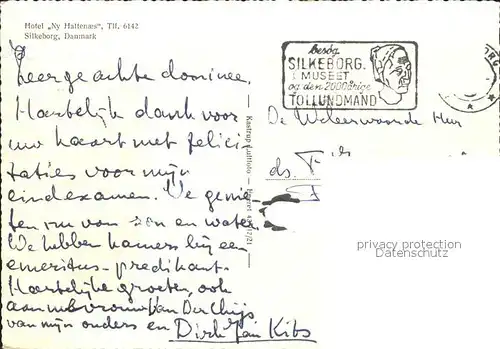 Hotel „Ny Hattenæs", Tlf. 6142
Silkeborg, Danmark
Zeergeachte dominee.
Hartelijk dank voor
uw kaart met felici-
taties voor mijn
eindexamen. We genie-
ten nu van zon en water.
We hebben kamers bij een
emeritus-predikant.
Hartelijke groeten, ook
aan mevrouw Van Der Chijs
van mijn ouders en Dirk Jan Kits
Kastrup Luftfoto
besøg
SILKEBORG
MUSEET
og den 2000årige
TOLLUNDMAND
De Weleerwaarde Heer
ds. F
F
privacy protection
VDMedien24.de